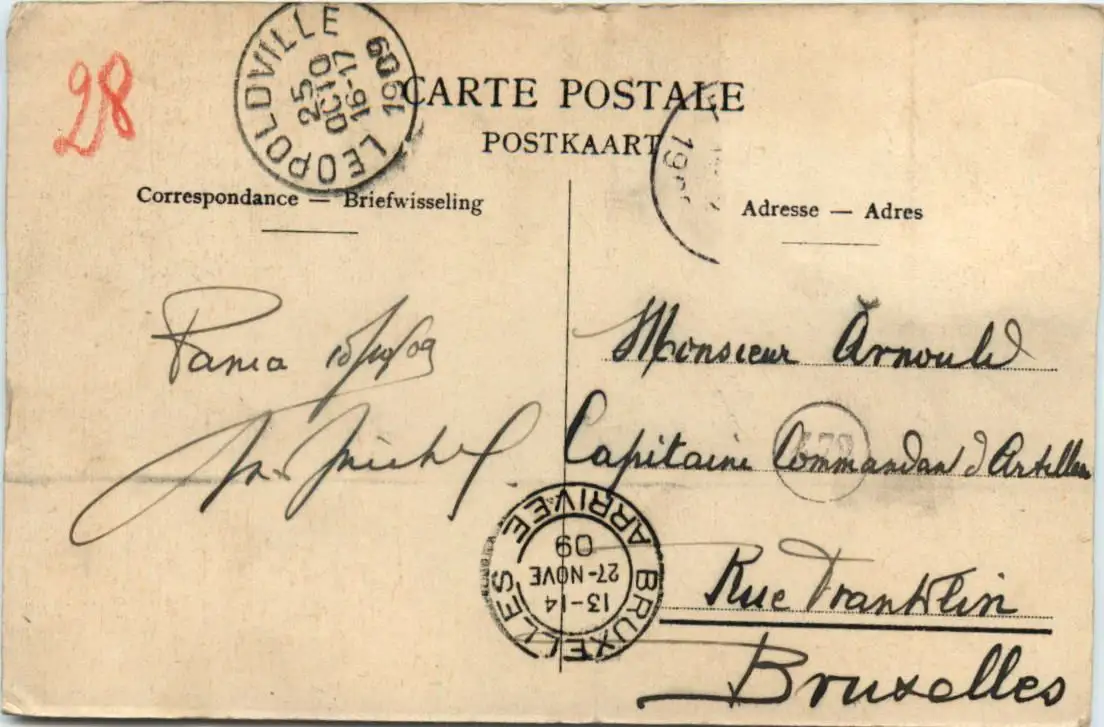 28
LEOPOLDVILLE
25
OCTO
16-17
1909
CARTE POSTALE
POSTKAART
19
Correspondance — Briefwisseling
Adresse — Adres
Pania 15/10/09
Michel
Monsieur Arnould
Capitaine Commandan d'Artillerie
Rue Franklin
Bruxelles
BRUXELLES
13-14
27-NOVE
09
ARRIVEE